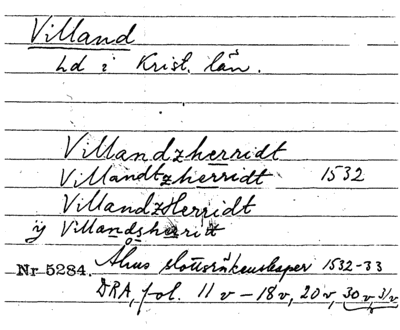 Villand
Ld i Krist. län.
Villandzherridt
Villandtzherridt 1532
VillandzHerridt
ij Villandsherritt
Nr 5284. Åhus slottsräkenskaper 1532-33
DRA, fol. 11 v - 18 v, 20 v, 30 v, 31 v